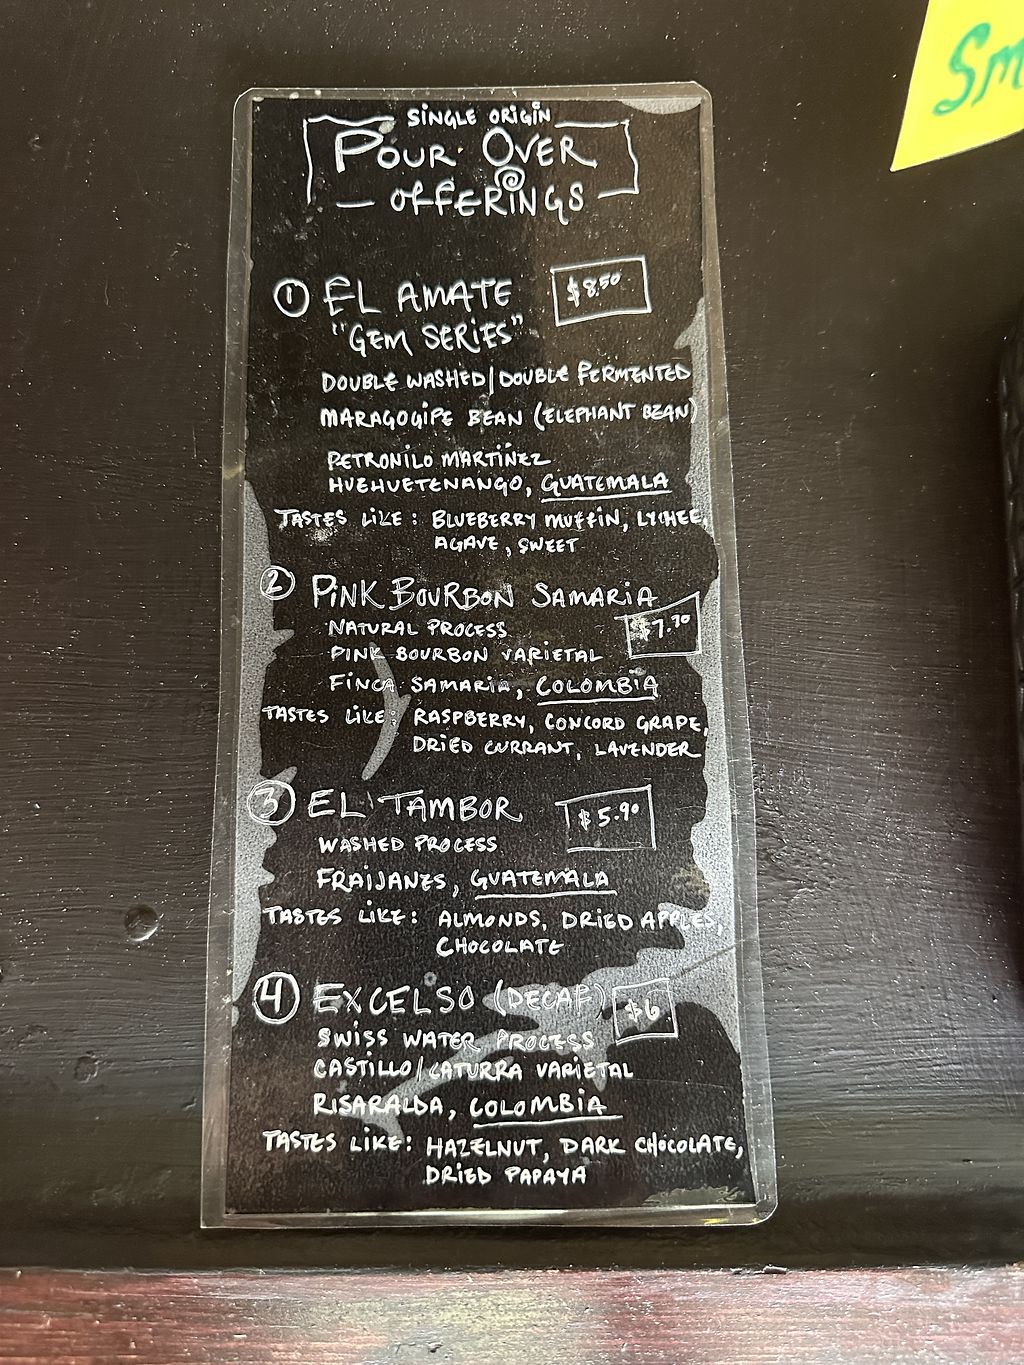 SINGLE ORIGIN
POUR OVER
OFFERINGS
1 EL AMATE $8.50
"GEM SERIES"
DOUBLE WASHED/DOUBLE FERMENTED
MARAGOGIPE BEAN (ELEPHANT BEAN)
PETRONILO MARTINEZ
HUEHUETENANGO, GUATEMALA
TASTES LIKE: BLUEBERRY MUFFIN, LYCHEE,
AGAVE, SWEET
2 PINK BOURBON SAMARIA
NATURAL PROCESS $7.70
PINK BOURBON VARIETAL
FINCA SAMARIA, COLOMBIA
TASTES LIKE: RASPBERRY, CONCORD GRAPE,
DRIED CURRANT, LAVENDER
3 EL TAMBOR $5.90
WASHED PROCESS
FRAIJANES, GUATEMALA
TASTES LIKE: ALMONDS, DRIED APPLES,
CHOCOLATE
4 EXCELSO (DECAF) $6
SWISS WATER PROCESS
CASTILLO/CATURRA VARIETAL
RISARALDA, COLOMBIA
TASTES LIKE: HAZELNUT, DARK CHOCOLATE,
DRIED PAPAYA